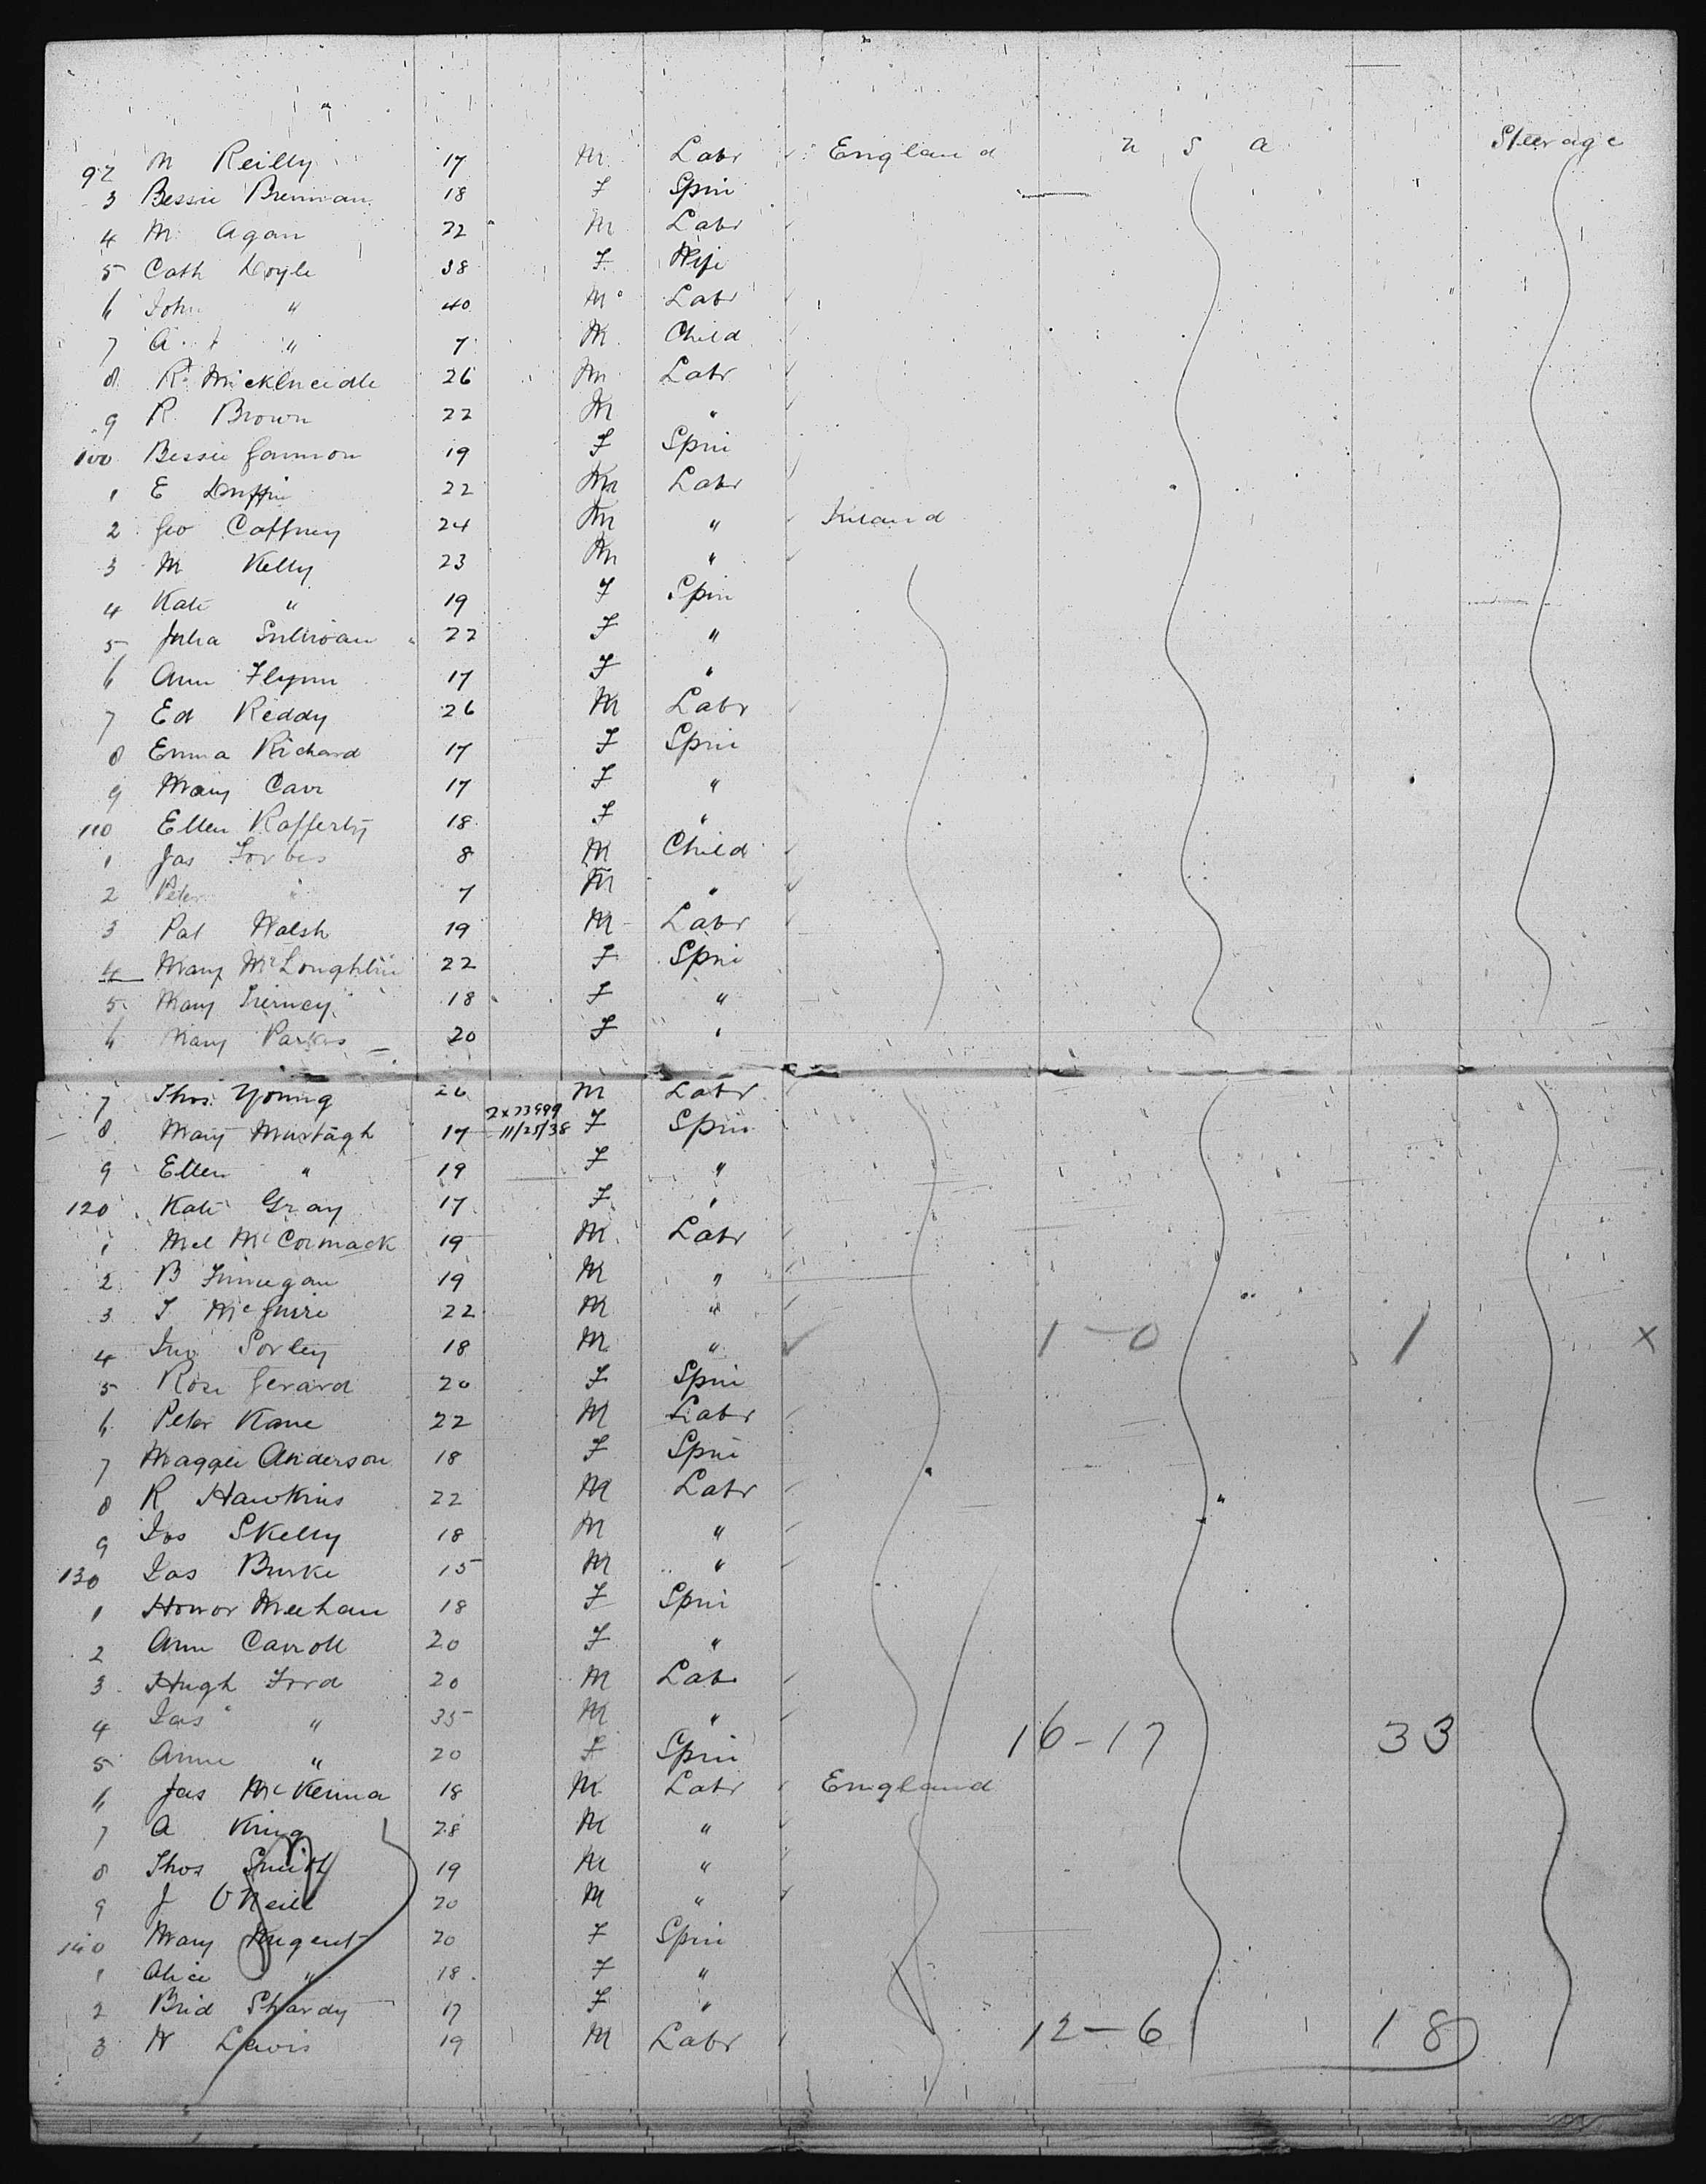 92 M Reilly 17 M Labr England U S A Steerage
3 Bessie Brennan 18 F Spin
4 M Agan 22 M Labr
5 Cath Doyle 38 F Wife
6 John " 40 M Labr
7 A " 7 M Child
8 R 26 M Labr
9 R Brown 22 M "
100 Bessie Gannon 19 F Spin
1 E Duffin 22 M Labr
2 Geo Caffrey 24 M " Ireland
3 M Kelly 23 M "
4 Kate " 19 F Spin
5 Julia Sullivan 22 F "
6 Ann Flynn 17 F "
7 Ed Reddy 26 M Labr
8 Emma Richard 17 F Spin
9 Mary Carr 17 F "
110 Ellen Rafferty 18 F "
1 Jas Forbes 8 M Child
2 Peter " 7 M "
3 Pat Walsh 19 M Labr
4 Mary McLoughlin 22 F Spin
5 Mary Tierney 18 F "
6 Mary Parkes 20 F "
7 Thos Young 26 M Labr
2x73999
8 Mary Murtagh 17 11/25/38 F Spin
9 Ellen " 19 F "
120 Kate Gray 17 F "
1 Mcl McCormack 19 M Labr
2 B Finnegan 19 M "
3 T McGuire 22 M "
4 Jno Sorley 18 M " 1-0 1 X
5 Rose Gerard 20 F Spin
6 Peter Kane 22 M Labr
7 Maggie Anderson 18 F Spin
8 R Hawkins 22 M Labr
9 Jos Skelly 18 M "
130 Jas Burke 15 M "
1 Honor Meehan 18 F Spin
2 Ann Carroll 20 F "
3 Hugh Ford 20 M Lab
4 Jas " 35 M " 16-17 33
5 Anne " 20 F Spin
6 Jas McKenna 18 M Labr England
7 A King 28 M "
8 Thos Smith 19 M "
9 J O'Neill 20 M "
140 Mary Nugent 20 F Spin
1 Alice " 18 F "
2 Brid Shardy 17 F " 12-6 18
3 W Lewis 19 M Labr